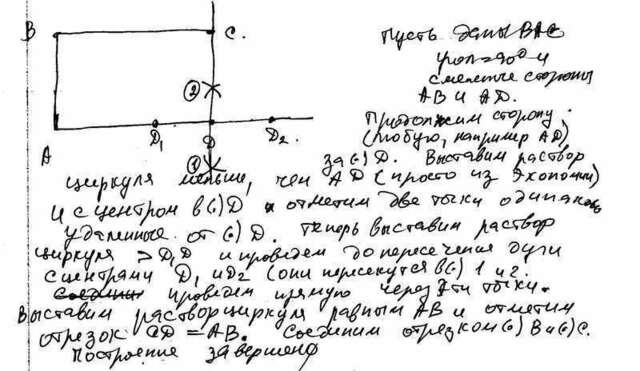 B
C.
②
A
D₁
D
D₂.
①
Пусть даны ВАС
угол = 90° и
смежные стороны
АВ и АD.
Продолжим сторону
(любую, например АD)
за (·) D. Выставим раствор
циркуля меньше, чем АD (просто из экономии)
и с центром в (·) D отметим две точки одинаково
удаленные от (·) D. Теперь выставим раствор
циркуля > D₁D и проведем до пересечения дуги
с центрами D₁ и D₂ (они пересекутся в (·) 1 и 2.
Соедини проведем прямую через эти точки.
Выставим раствор циркуля равным АВ и отметим
отрезок CD = AB. Соединим отрезком (·) В и (·) С.
Построение завершено